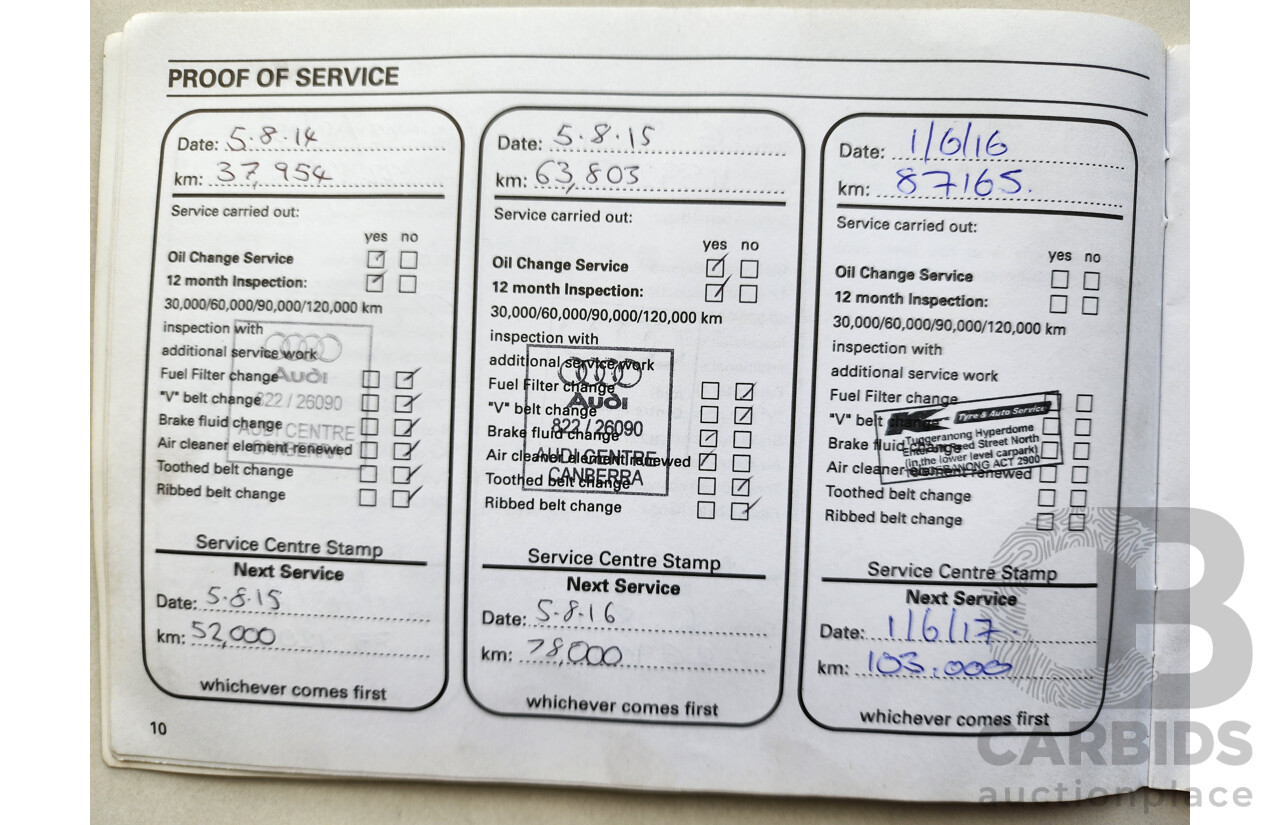 PROOF OF SERVICE
Date: 5.8.14
km: 37,954
Service carried out:
yes no
Oil Change Service
12 month Inspection:
30,000/60,000/90,000/120,000 km
inspection with
additional service work
Fuel Filter change
"V" belt change
Brake fluid change
Air cleaner element renewed
Toothed belt change
Ribbed belt change
Audi
822 / 26090
AUDI CENTRE
CANBERRA
Service Centre Stamp
Next Service
Date: 5.8.15
km: 52,000
whichever comes first
Date: 5.8.15
km: 63,803
Service carried out:
yes no
Oil Change Service
12 month Inspection:
30,000/60,000/90,000/120,000 km
inspection with
additional service work
Fuel Filter change
"V" belt change
Brake fluid change
Air cleaner element renewed
Toothed belt change
Ribbed belt change
Audi
822 / 26090
AUDI CENTRE
CANBERRA
Service Centre Stamp
Next Service
Date: 5.8.16
km: 78,000
whichever comes first
Date: 1/6/16
km: 87165.
Service carried out:
yes no
Oil Change Service
12 month Inspection:
30,000/60,000/90,000/120,000 km
inspection with
additional service work
Fuel Filter change
"V" belt change
Brake fluid change
Air cleaner element renewed
Toothed belt change
Ribbed belt change
Tyre & Auto Service
Tuggeranong Hyperdome
Reed Street North
(in the lower level carpark)
ACT 2900
Service Centre Stamp
Next Service
Date: 1/6/17.
km: 103.000
whichever comes first
10
CARBIDS
auctionplace